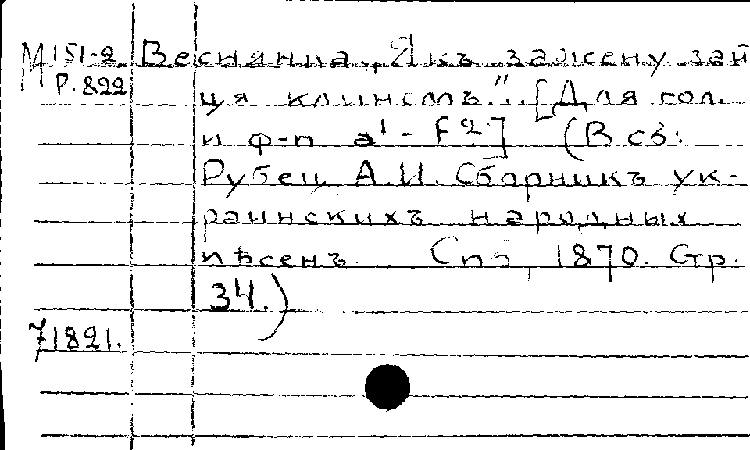 М 151-2 Веснянка „Якъ зажену зай
Р.822 ця клинемъ". [Для гол.
и ф-п a¹ - f²] (В сб:
Рубец А.И. Сборникъ ук-
раинскихъ народных
пѣсенъ Спб, 1870. Стр.
34.)
71821.